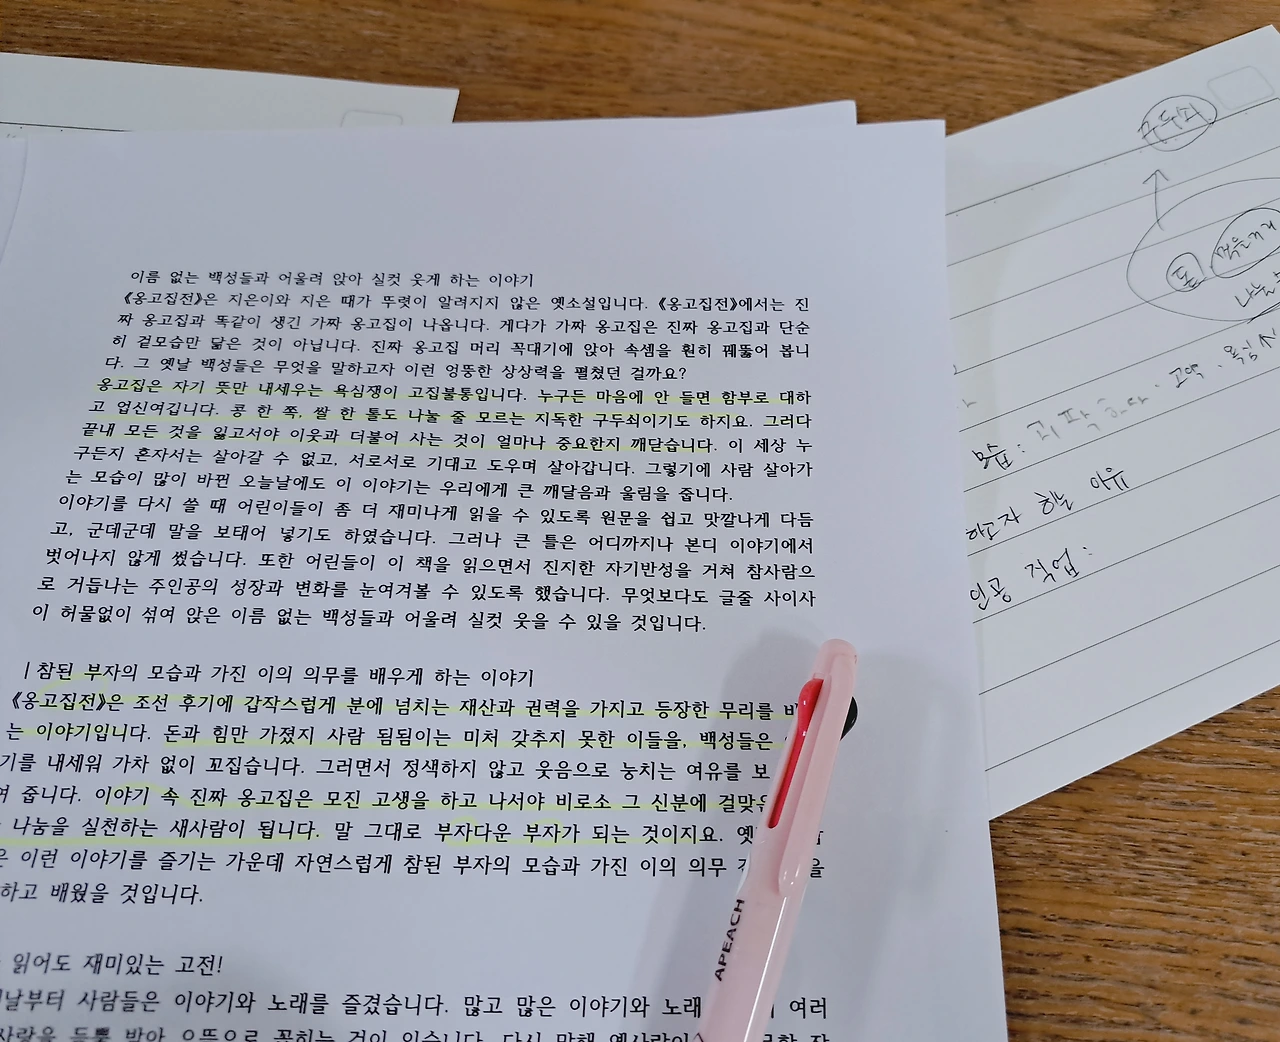 이름 없는 백성들과 어울려 앉아 실컷 웃게 하는 이야기
《옹고집전》은 지은이와 지은 때가 뚜렷이 알려지지 않은 옛소설입니다. 《옹고집전》에서는 진
짜 옹고집과 똑같이 생긴 가짜 옹고집이 나옵니다. 게다가 가짜 옹고집은 진짜 옹고집과 단순
히 겉모습만 닮은 것이 아닙니다. 진짜 옹고집 머리 꼭대기에 앉아 속셈을 훤히 꿰뚫어 봅니
다. 그 옛날 백성들은 무엇을 말하고자 이런 엉뚱한 상상력을 펼쳤던 걸까요?
옹고집은 자기 뜻만 내세우는 욕심쟁이 고집불통입니다. 누구든 마음에 안 들면 함부로 대하
고 업신여깁니다. 콩 한 쪽, 쌀 한 톨도 나눌 줄 모르는 지독한 구두쇠이기도 하지요. 그러다
끝내 모든 것을 잃고서야 이웃과 더불어 사는 것이 얼마나 중요한지 깨닫습니다. 이 세상 누
구든지 혼자서는 살아갈 수 없고, 서로서로 기대고 도우며 살아갑니다. 그렇기에 사람 살아가
는 모습이 많이 바뀐 오늘날에도 이 이야기는 우리에게 큰 깨달음과 울림을 줍니다.
이야기를 다시 쓸 때 어린이들이 좀 더 재미나게 읽을 수 있도록 원문을 쉽고 맛깔나게 다듬
고, 군데군데 말을 보태어 넣기도 하였습니다. 그러나 큰 틀은 어디까지나 본디 이야기에서
벗어나지 않게 썼습니다. 또한 어린들이 이 책을 읽으면서 진지한 자기반성을 거쳐 참사람으
로 거듭나는 주인공의 성장과 변화를 눈여겨볼 수 있도록 했습니다. 무엇보다도 글줄 사이사
이 허물없이 섞여 앉은 이름 없는 백성들과 어울려 실컷 웃을 수 있을 것입니다.
| 참된 부자의 모습과 가진 이의 의무를 배우게 하는 이야기
《옹고집전》은 조선 후기에 갑작스럽게 분에 넘치는 재산과 권력을 가지고 등장한 무리를
는 이야기입니다. 돈과 힘만 가졌지 사람 됨됨이는 미처 갖추지 못한 이들을, 백성들은
기를 내세워 가차 없이 꼬집습니다. 그러면서 정색하지 않고 웃음으로 눙치는 여유를 보
여 줍니다. 이야기 속 진짜 옹고집은 모진 고생을 하고 나서야 비로소 그 신분에 걸맞은
나눔을 실천하는 새사람이 됩니다. 말 그대로 부자다운 부자가 되는 것이지요.
은 이런 이야기를 즐기는 가운데 자연스럽게 참된 부자의 모습과 가진 이의 의무
하고 배웠을 것입니다.
읽어도 재미있는 고전!
날부터 사람들은 이야기와 노래를 즐겼습니다. 많고 많은 이야기와 노래 여러
APEACH
구두쇠
돈
먹을거리
모습: 괴팍하다. 고약. 욕심
하고자 하는 이유
인공 직업: